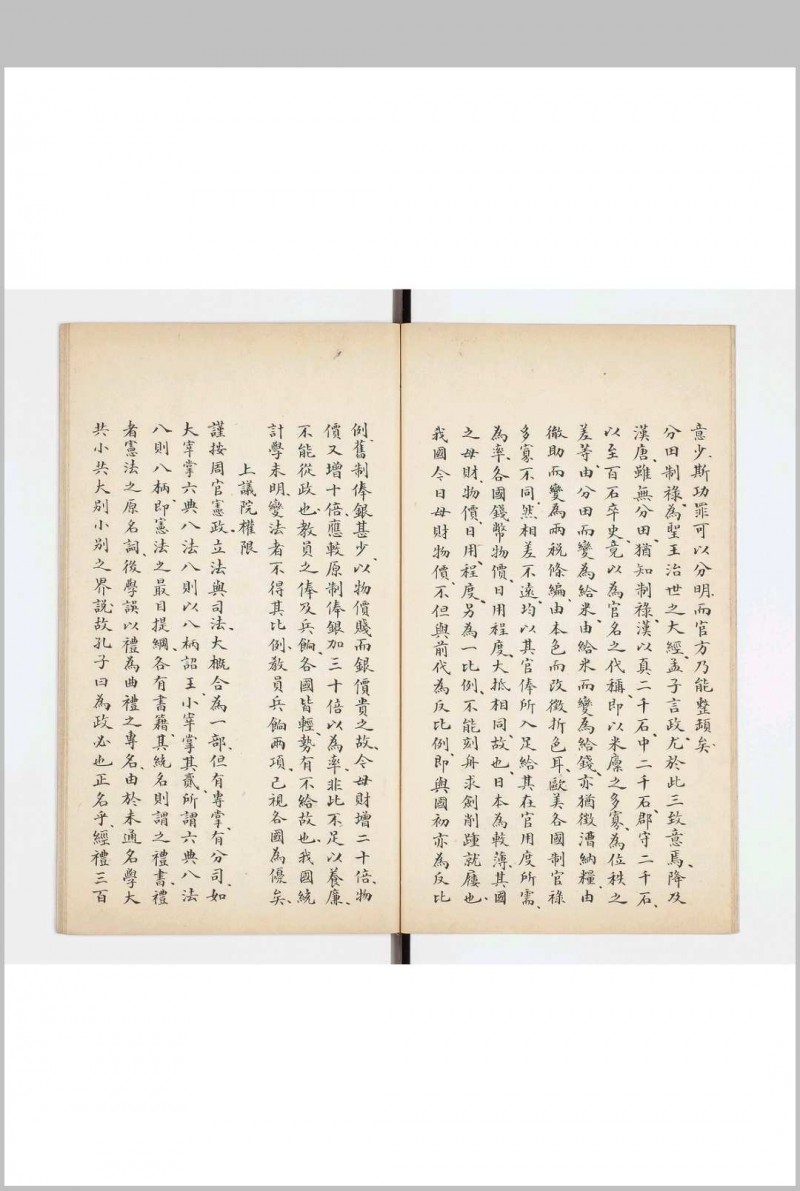 意少、斯功罪可以分明、而官方乃能整頓矣、
分田制祿、為聖王治世之大經、孟子言政、尤於此三致意焉、降及
漢唐、雖無分田、猶知制祿、漢以真二千石、中二千石、郡守二千石、
以至百石卒史、竟以為官名之代稱、即以米廩之多寡、為位秩之
差等、由分田而變為給米、由給米而變為給錢、亦猶徵漕納糧、由
徹助而變為兩税條編、由本色而改徵折色耳、歐美各國制官祿
多寡不同、然相差不遠、均以其官俸所入、足給其在官用度所需、
為率、各國錢幣物價、日用程度、大抵相同故也、日本為較薄、其國
之母財、物價、日用、程度、另為一比例、不能刻舟求劍削踵就屨也、
我國今日母財物價、不但與前代為反比例、即與國初亦為反比
例、舊制俸銀甚少、以物價賤而銀價貴之故、今母財增二十倍、物
價又增十倍、應較原制俸銀加三十倍以為率、非此不足以養廉、
不能從政也、教員之俸及兵餉、各國皆輕、勢有不給故也、我國統
計學未明、變法者不得其比例、教員兵餉兩項、已視各國為優矣、
上議院權限
謹按周官憲政、立法與司法、大概合為一部、但有專掌、有分司、如
大宰掌六典八法八則、以八柄詔王、小宰掌其貳、所謂六典八法
八則八柄、即憲法之最目提綱、各有書籍、其統名則謂之禮書、禮
者憲法之原名詞、後學誤以禮為曲禮之專名、由於未通名學大
共小共大別小別之界說、故孔子曰為政必也正名乎、經禮三百